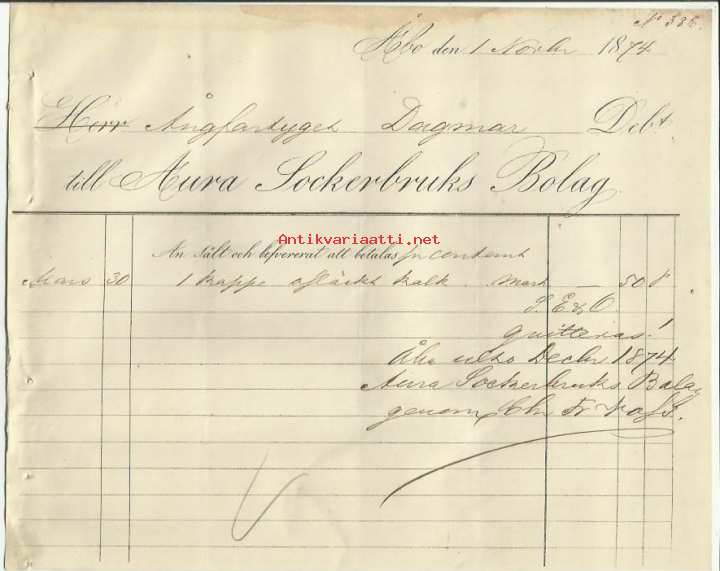 Nº 386.
Åbo den 1 Novbr 1874
Herr Ångfartyget Dagmar Debt.
till Aura Sockerbruks Bolag.
Antikvariaatti.net
An sålt och lefvererat att betalas pr contant
Mars 30 1 kappe osläckt kalk. Mark — 50 p
S. E. & O.
quitteras!
Åbo ulto Decbr 1874
Aura Sockerbruks Bolag
genom Chr Fr